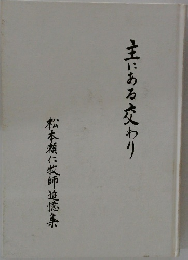 主にある交わり
松本頼仁牧師追憶集